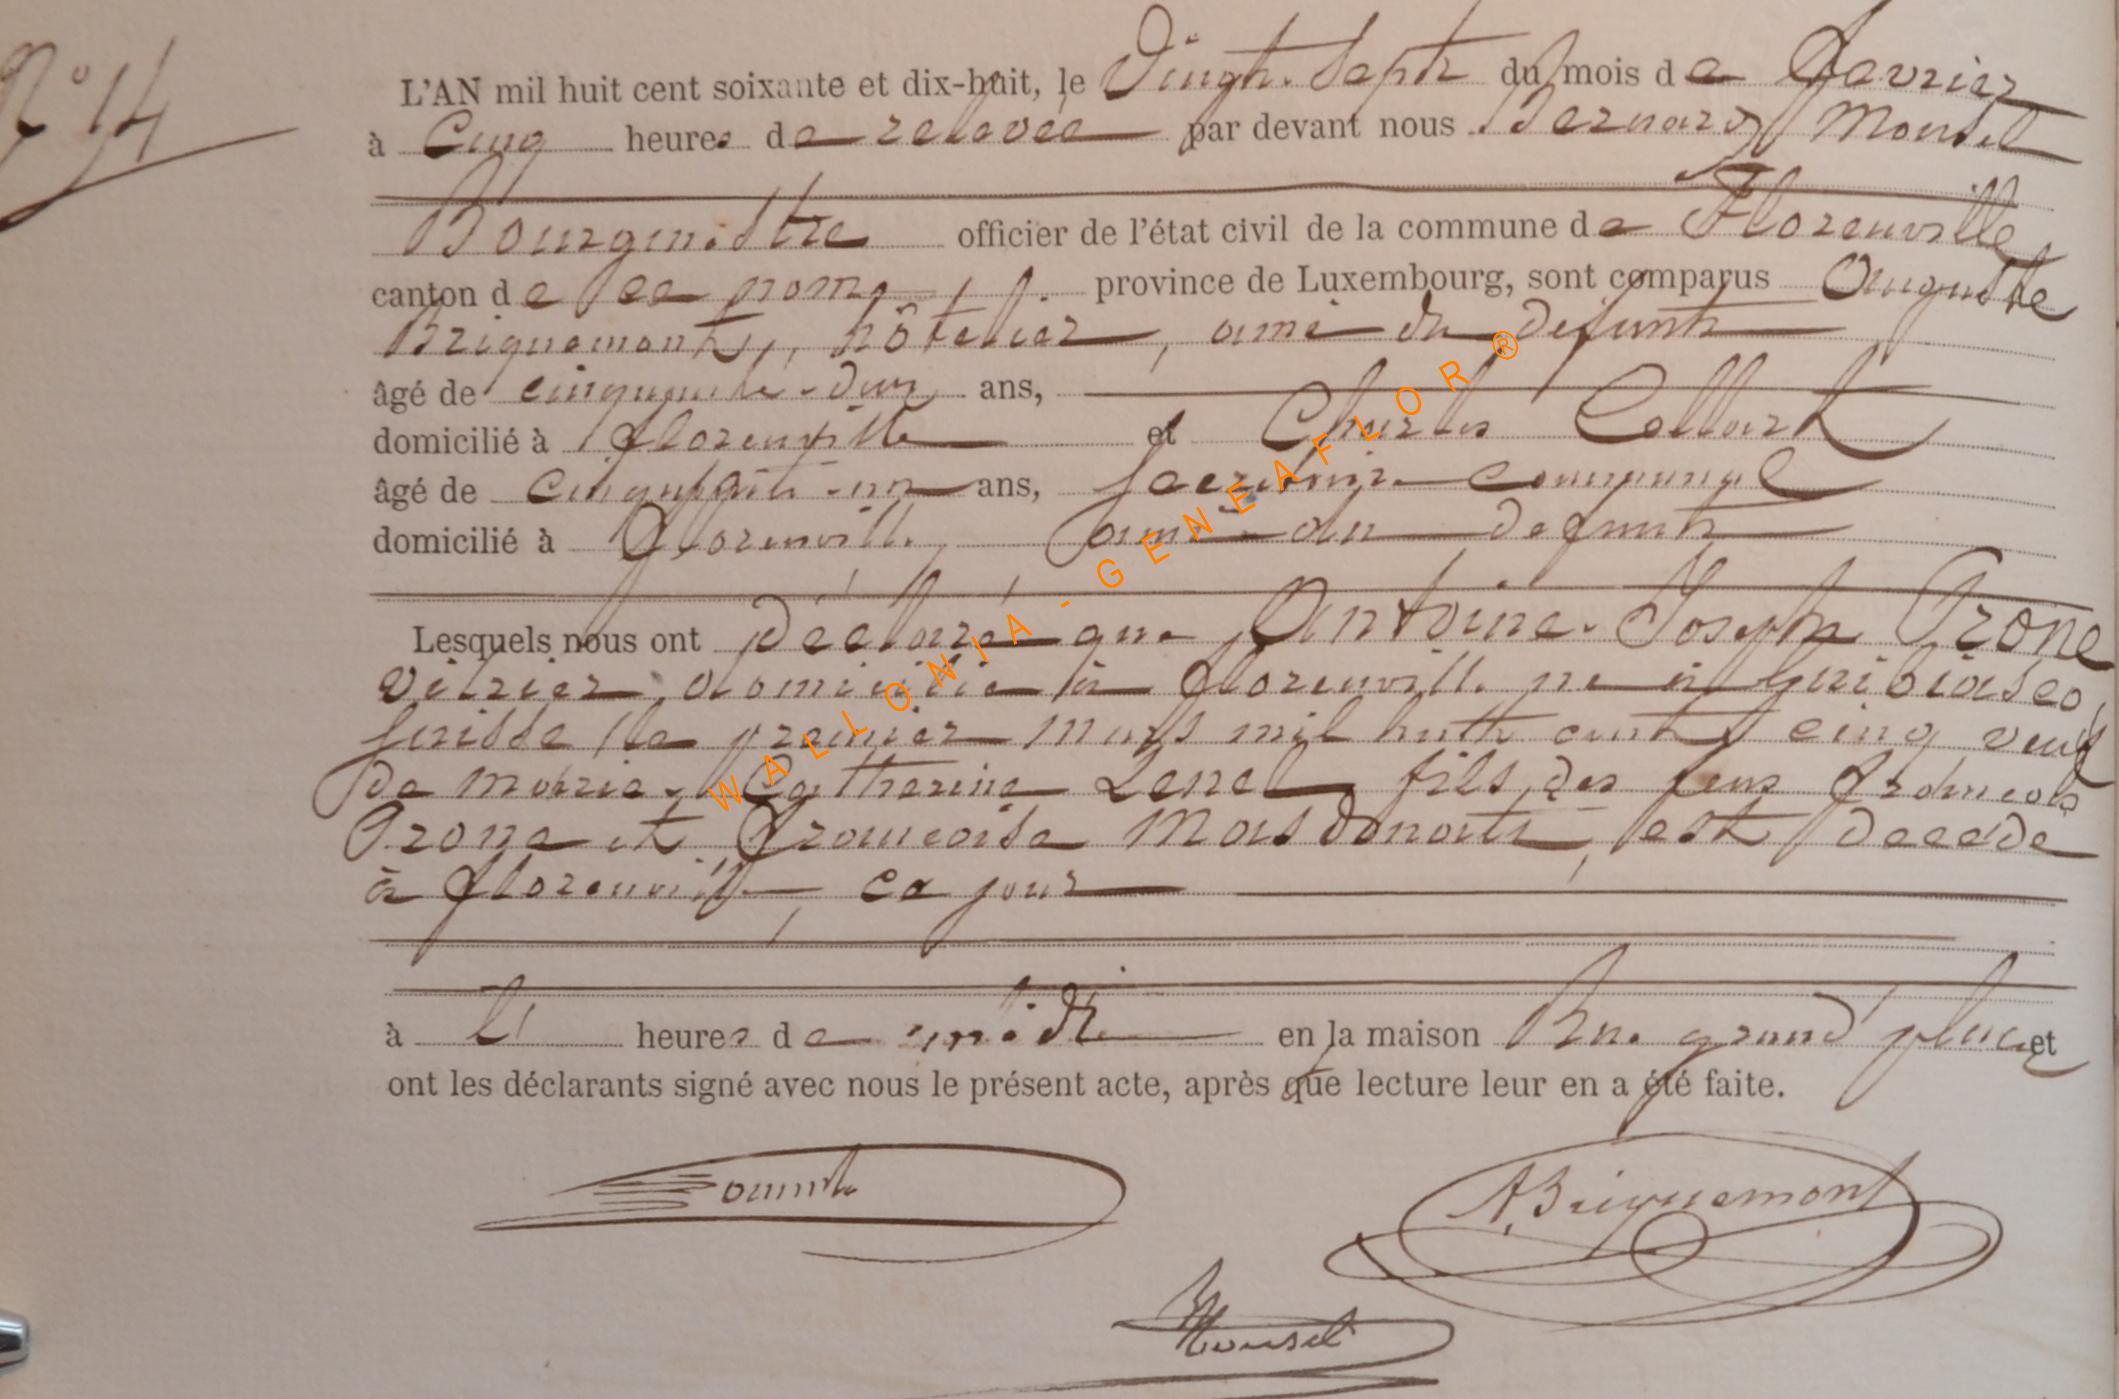 N° 14
L'AN mil huit cent soixante et dix-huit, le Vingt-Sept du mois de Fevrier
à Cinq heures de relevée par devant nous Bernard Monsel
Bourgmestre officier de l'état civil de la commune de Florenville
canton de ce nom, province de Luxembourg, sont comparus Auguste
Briquemont, hôtelier, ami du defunt
âgé de cinquante-deux ans,
domicilié à florenville et Charles Collart
âgé de Cinquante-un ans, secretaire communal
domicilié à florenville ami du defunt
Lesquels nous ont Déclaré que Antoine-Joseph Prone
vitrier, domicilié à florenville né à Guibiasco
suisse le premier mars mil huit cent cinq veuf
de Marie-Catherine Lenel fils des feus francois
Prone et francoise Masdonati, est décedé
à florenville, ce jour
à heures de midi en la maison Rue grand place et
ont les déclarants signé avec nous le présent acte, après que lecture leur en a été faite.
ABriquemont
BMonsel
WALLONIA - GENEAFLOR®